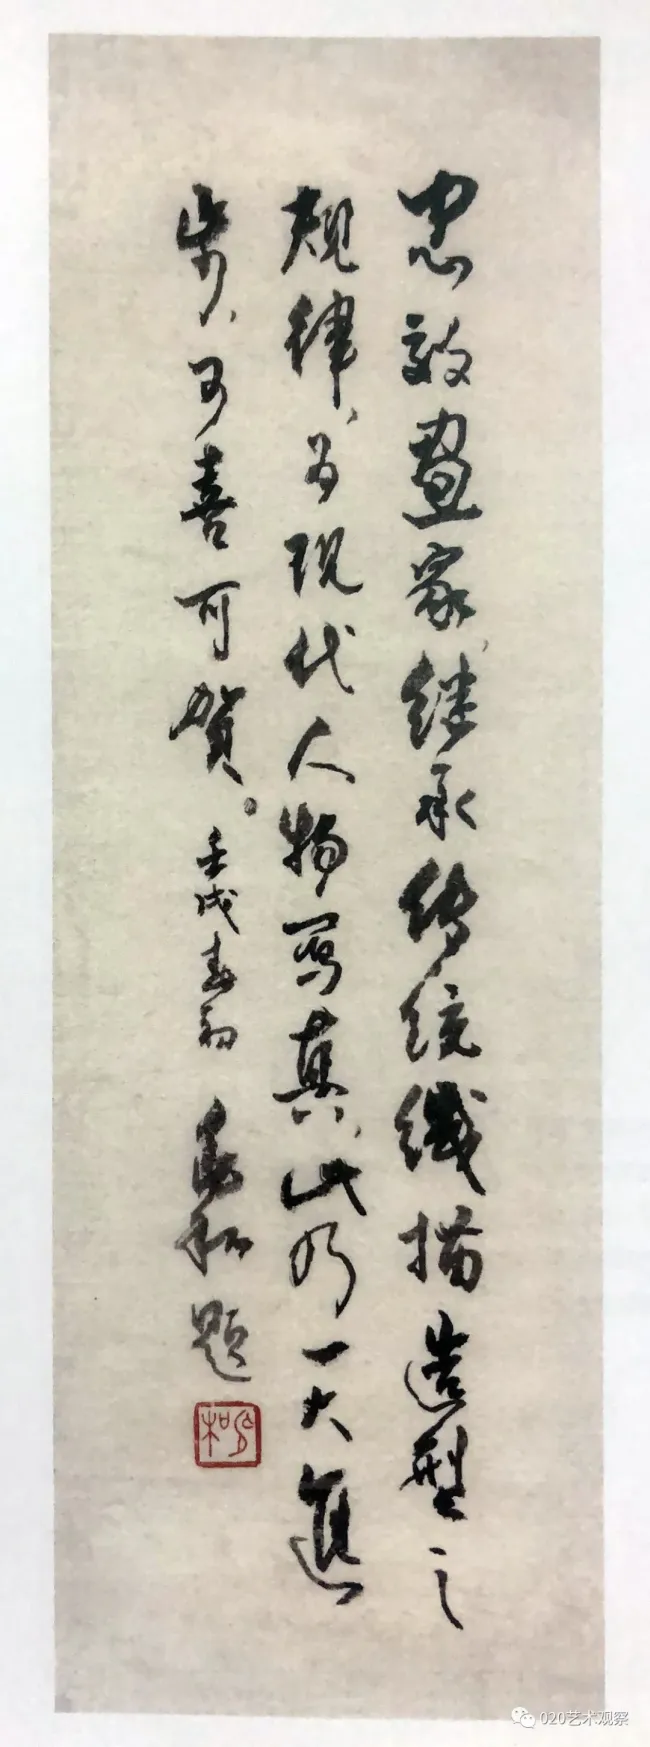 忠画家，继承传统綫描造型之
规律，为现代人物写真，此乃一大進
步，可喜可贺。壬戌春初 和题
020艺术观察